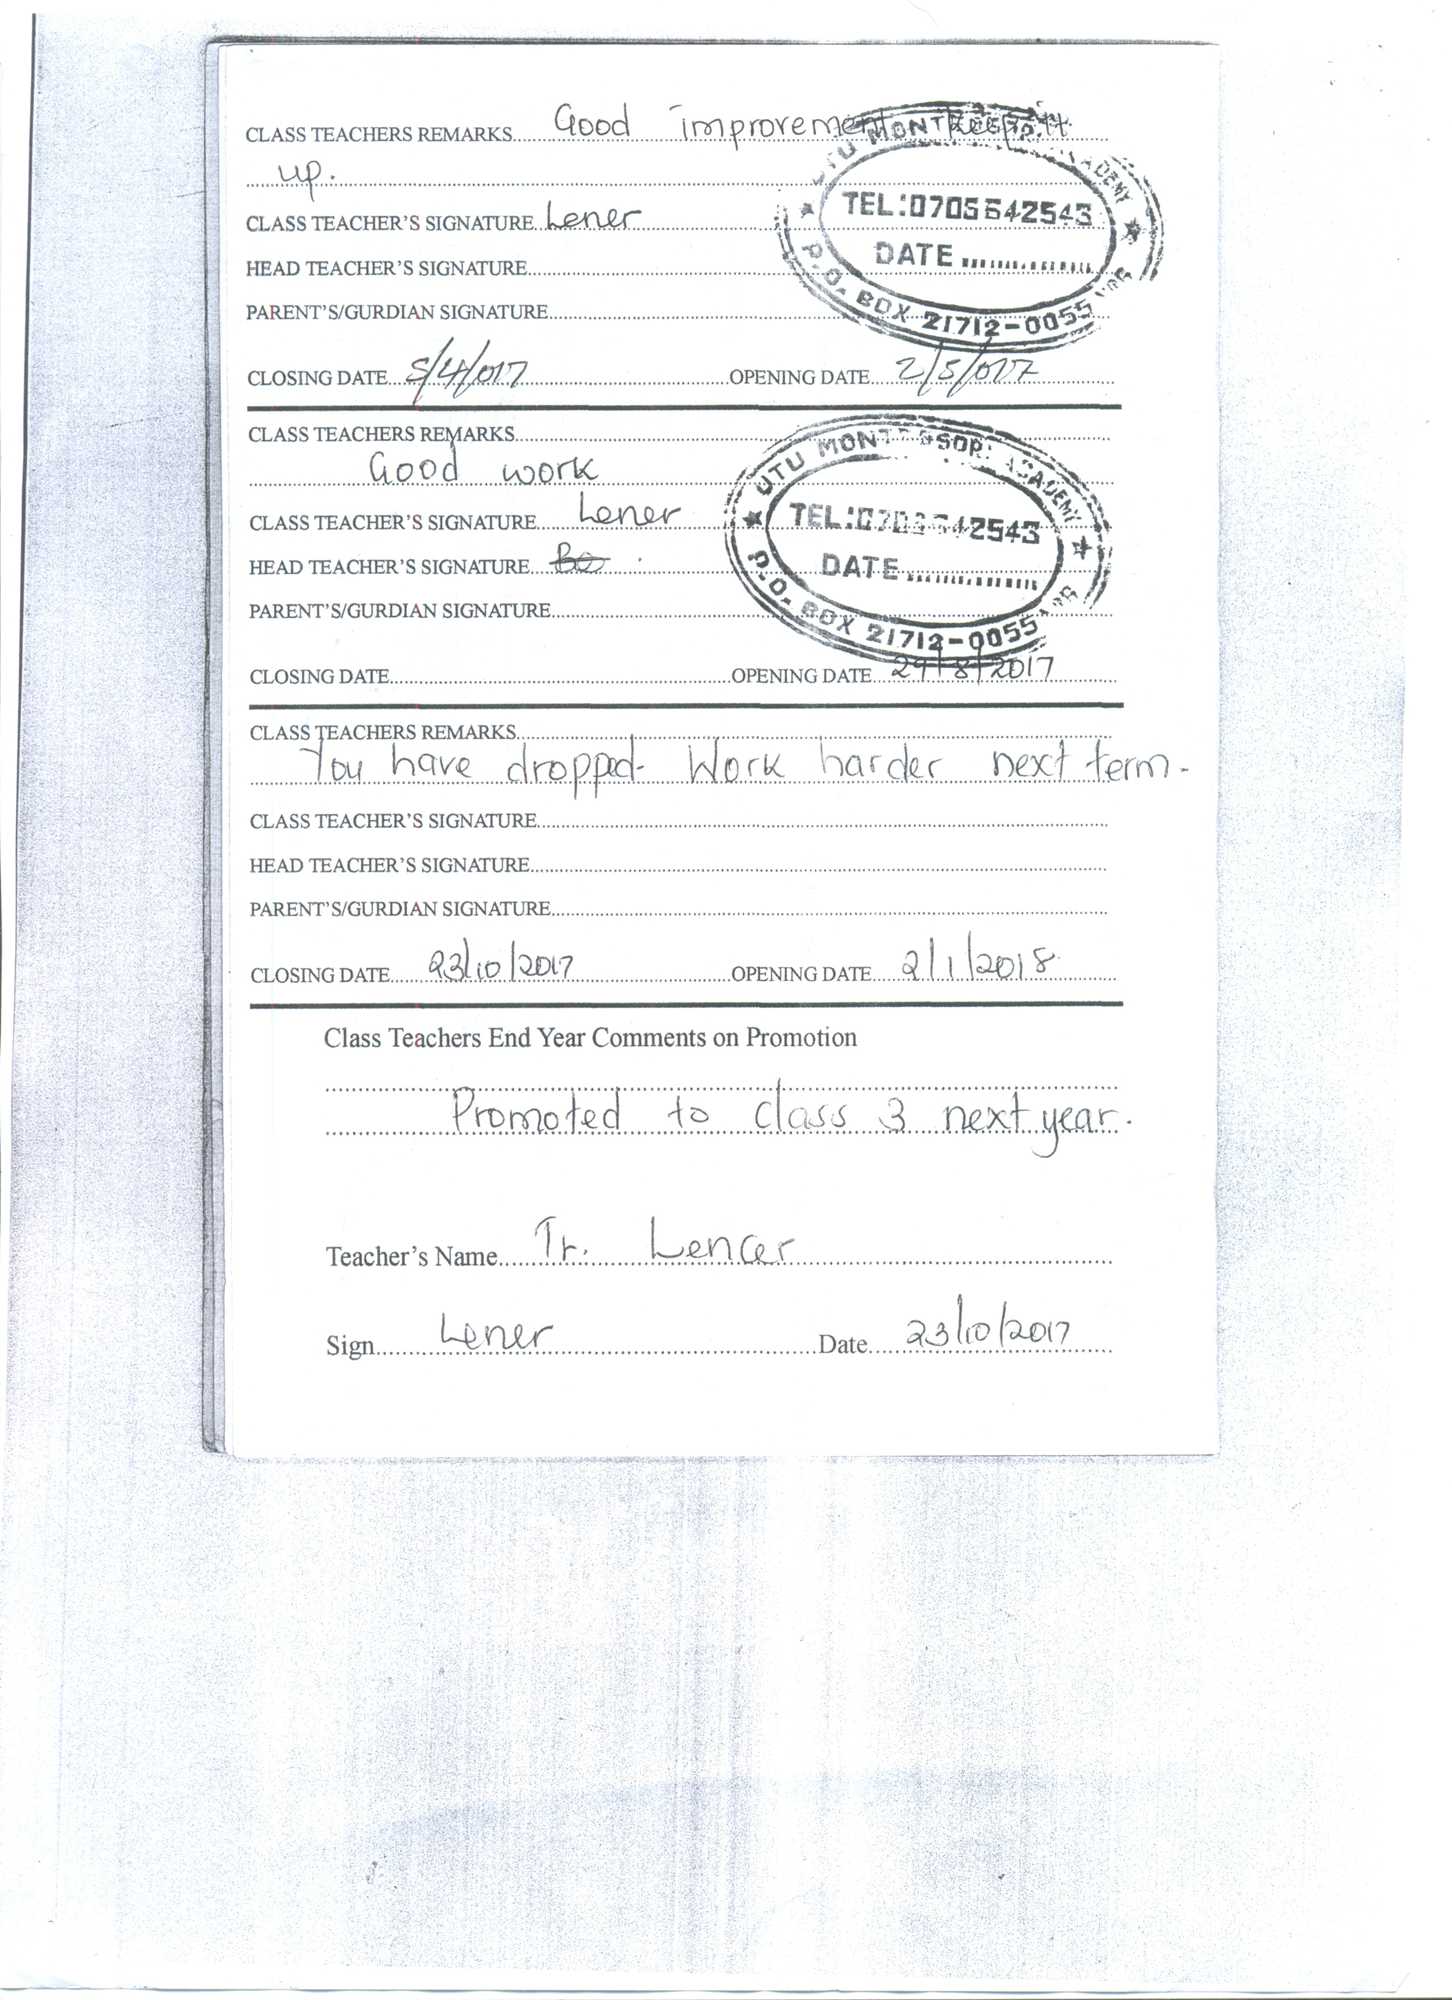 CLASS TEACHERS REMARKS Good improvement keep it
up.
CLASS TEACHER'S SIGNATURE Lener
HEAD TEACHER'S SIGNATURE
PARENT'S/GURDIAN SIGNATURE
CLOSING DATE 5/4/017 OPENING DATE 2/5/017
TEL:0705642543
DATE
P.O. BOX 21712-0055
CLASS TEACHERS REMARKS
Good work
CLASS TEACHER'S SIGNATURE Lener
HEAD TEACHER'S SIGNATURE
PARENT'S/GURDIAN SIGNATURE
CLOSING DATE OPENING DATE 29/8/2017
UTU MONTESSORI ACADEMY
DATE
P.O. BOX 21712-0055
CLASS TEACHERS REMARKS
You have dropped. Work harder next term.
CLASS TEACHER'S SIGNATURE
HEAD TEACHER'S SIGNATURE
PARENT'S/GURDIAN SIGNATURE
CLOSING DATE 23/10/2017 OPENING DATE 2/1/2018
Class Teachers End Year Comments on Promotion
Promoted to class 3 next year.
Teacher's Name Tr. Lencer
Sign Lener Date 23/10/2017